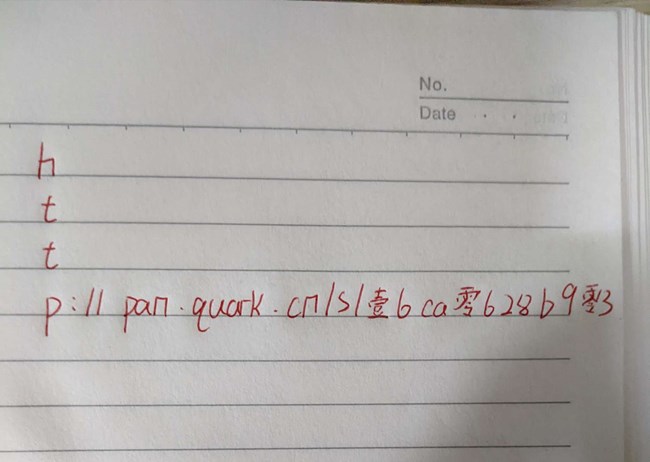 No.
Date . .
h
t
t
p://pan.quark.cn/s/壹6ca零628b9零3